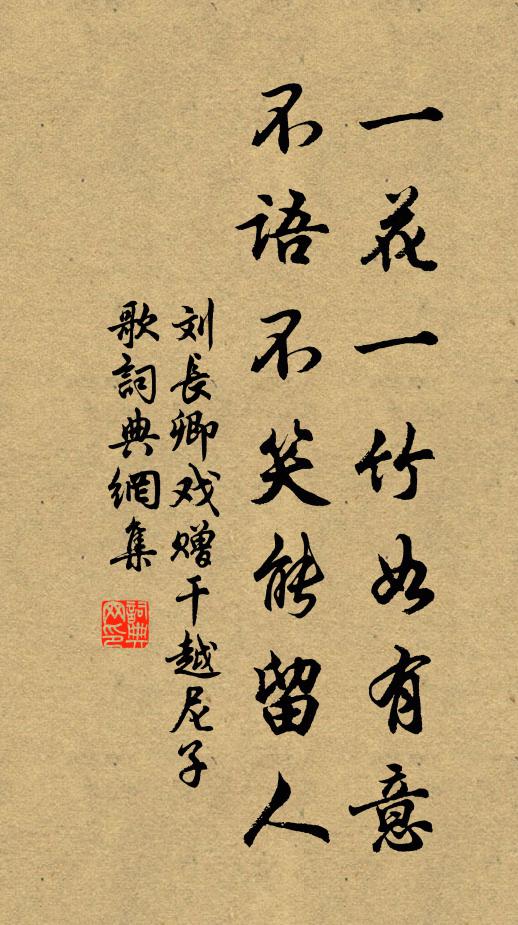 一花一竹如有意
不語不笑能留人
刘長卿戏赠干越尼子
歌詞典網集
詞典
网印